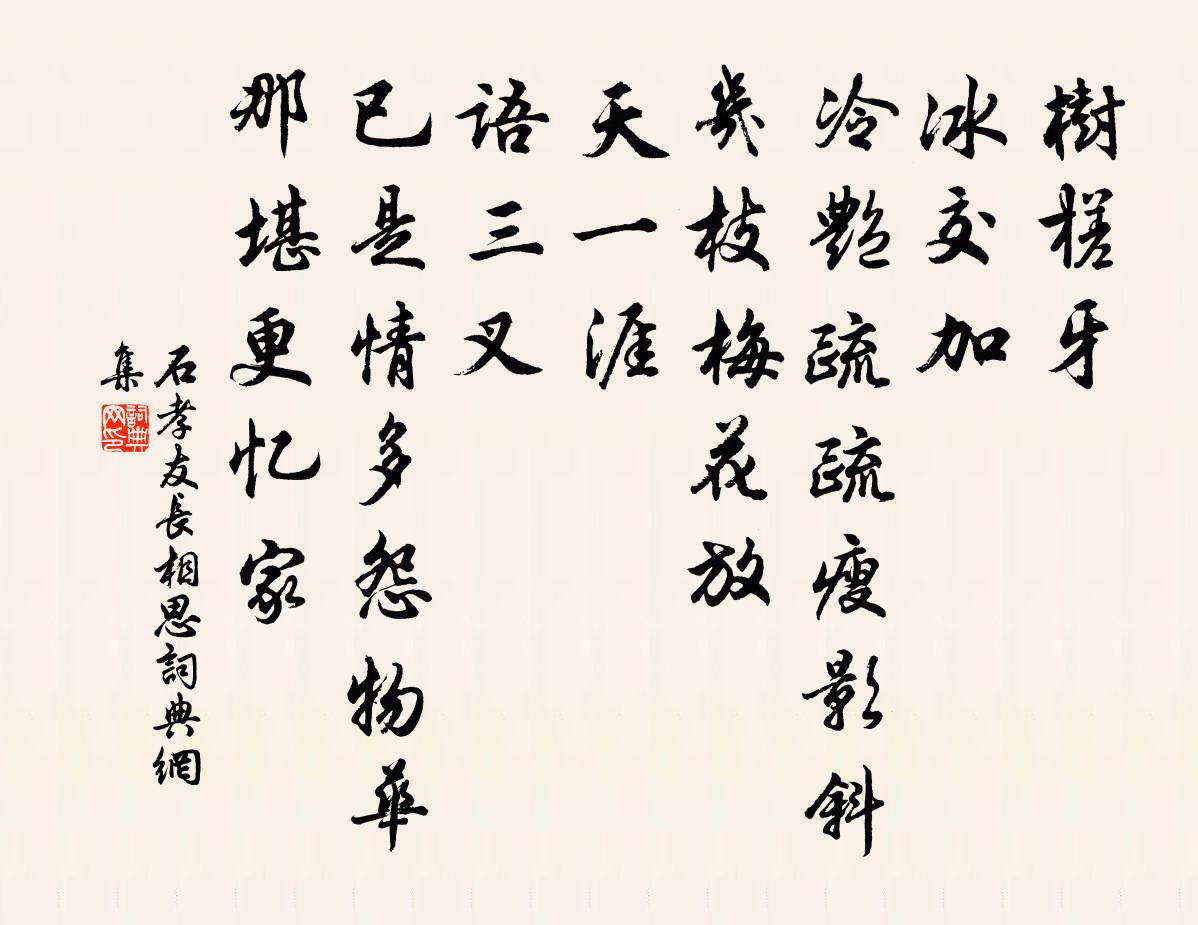 樹槎牙
冰交加
冷艷疏疏瘦影斜
幾枝梅花放
天一涯
語三叉
已是情多怨物華
那堪更忆家
石孝友長相思詞典網
集
詞典网印